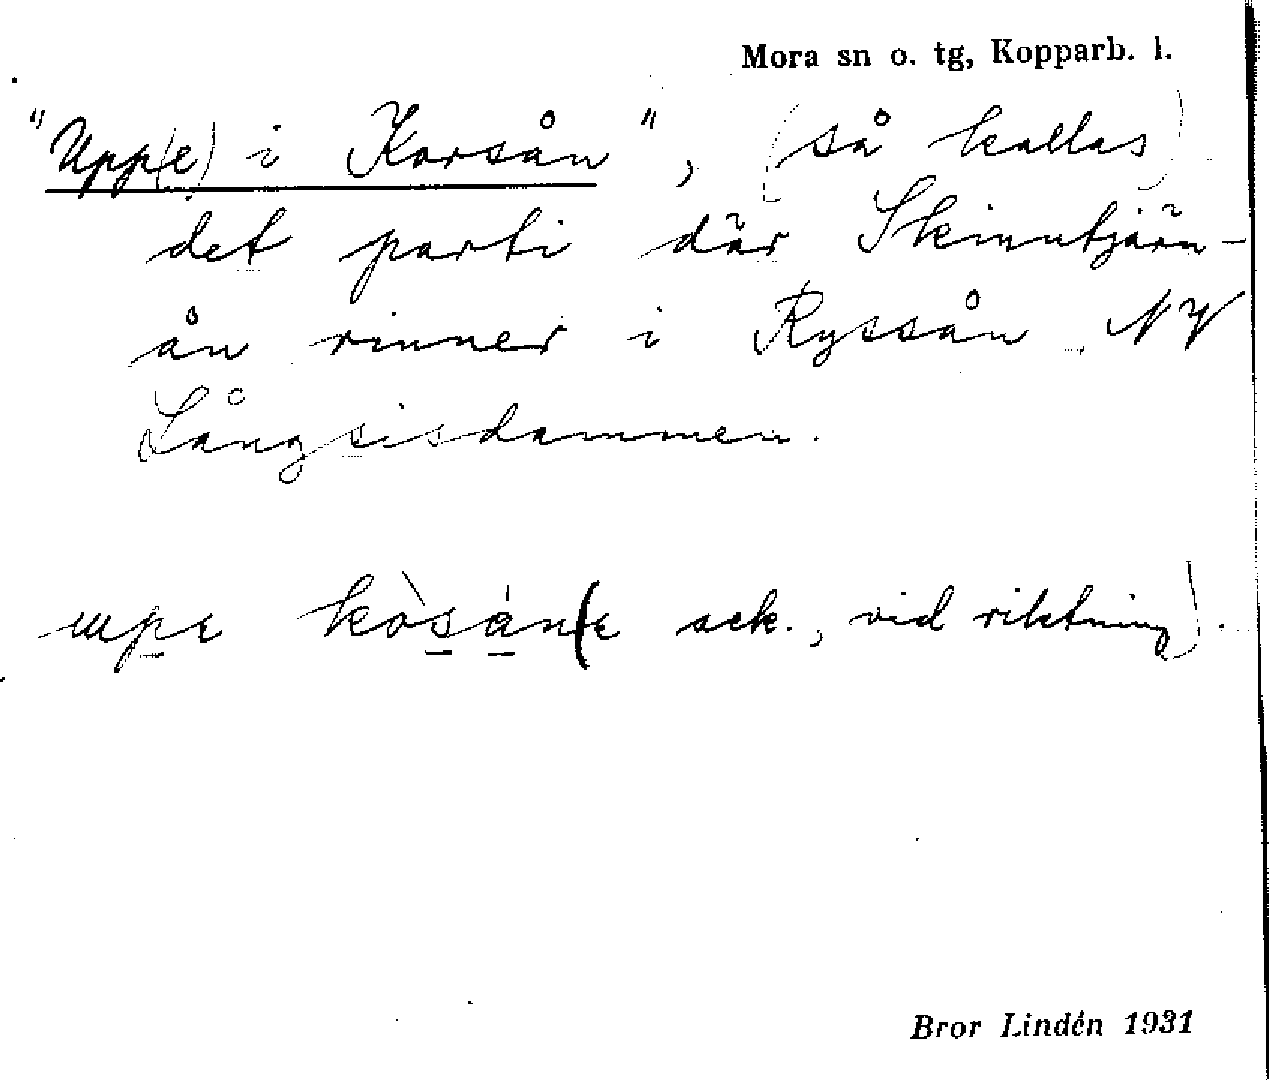 Mora sn o. tg, Kopparb. l.
"Upp(e) i Korsån", (så kallas)
det parti där Skinntjärn-
ån rinner i Ryssån NV
Långsisdammen.
uppe kòsån(e ack., vid riktning).
Bror Lindén 1931